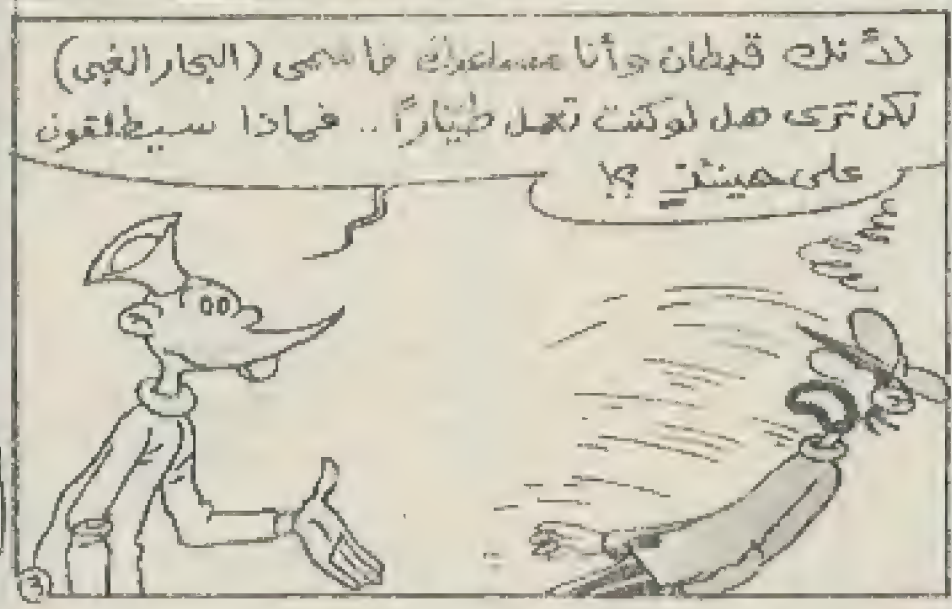 لأنك قبطان وأنا مساعدك فاسمى (البحار الغبى)
لكن ترى هل لو كنت تعمل طيارًا.. فماذا سيطلقون
على حينئذٍ ؟!
3